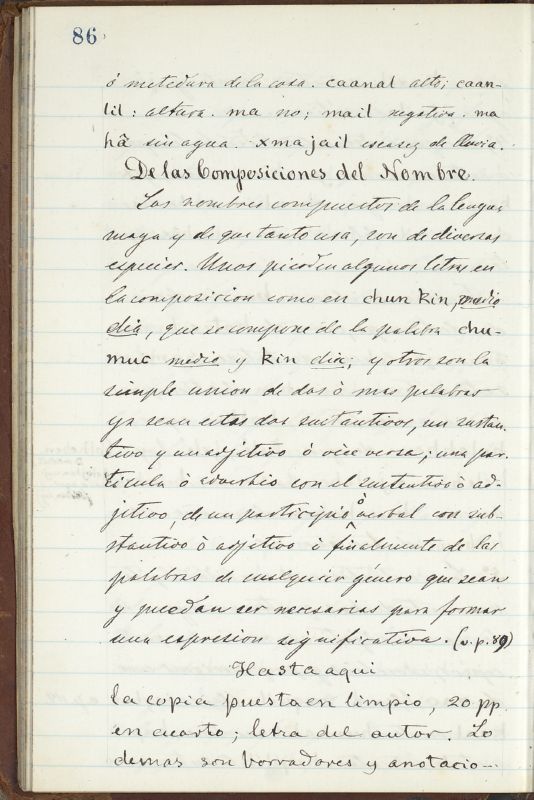 86
ó metedura de la cosa. caanal alto; caan-
lil: altura. ma no; mail negativa. ma
hâ sin agua. xma jail escasez de lluvia.
De las Composiciones del Nombre.
Los nombres compuestos de la lengua
maya y de que tanto usa, son de diversas
especies. Unos pierden algunas letras en
la composicion como en chun kin, medio
dia, que se compone de la palabra chu-
muc medio y kin dia; y otros son la
simple union de dos ò mas palabras
ya sean estas dos sustantivos, un sustan-
tivo y un adjetivo ò vice versa; una par-
ticula ò adverbio con el sustantivo ò ad-
jetivo, de un participio ^ò verbal con sub-
stantivo ò adjetivo ò finalmente de las
palabras de cualquier género que sean
y puedan ser necesarias para formar
una espresion significativa. (v. p. 89)
Hasta aqui
la copia puesta en limpio, 20 pp.
en cuarto; letra del autor. Lo
demas son borradores y anotacio-